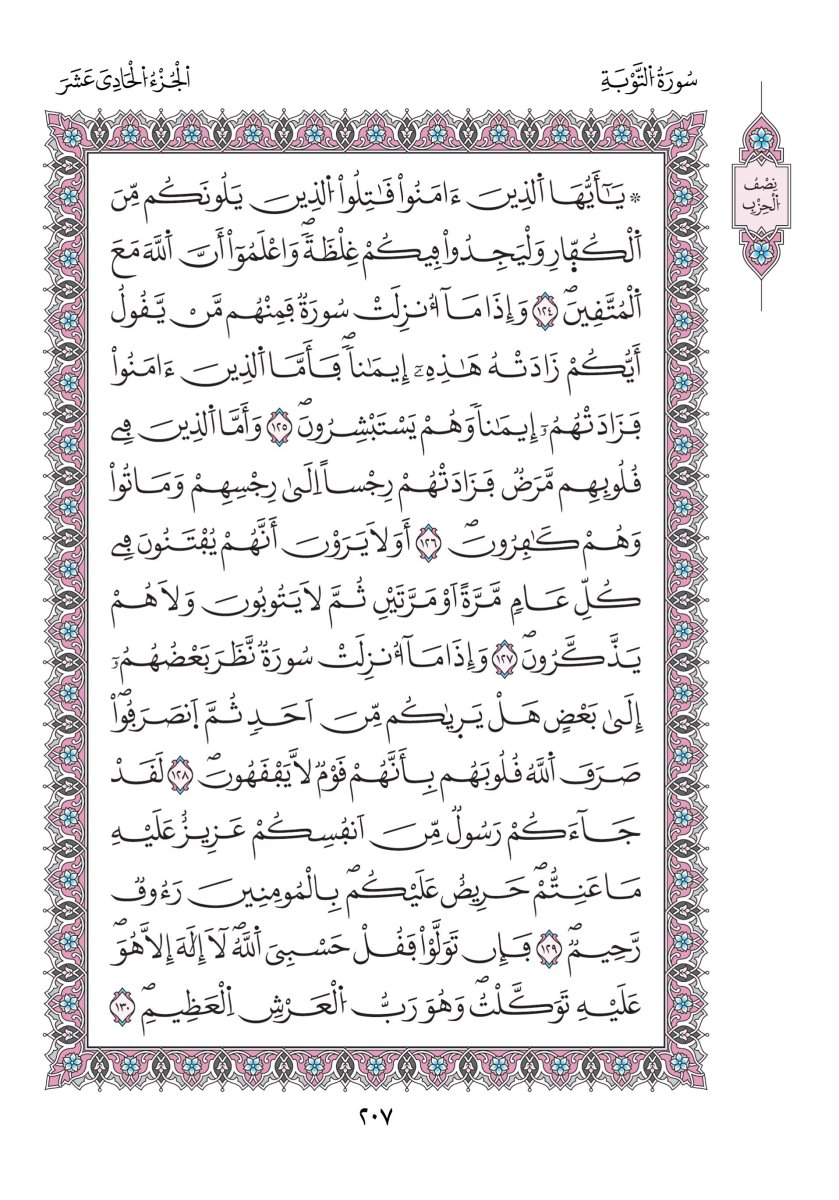 سُورَةُ التَّوْبَةِ
اَلْجُزْءُ الْحَادِيَ عَشَرَ
نِصْفُ
اَلْحِزْبِ
۞ يَٰٓأَيُّهَا اَ۬لذِينَ ءَامَنُواْ قَٰتِلُواْ اُ۬لذِينَ يَلُونَكُم مِّنَ
اَ۬لْكُفّ۪ارِ وَلْيَجِدُواْ فِيكُمْ غِلْظَةٗۖ وَاعْلَمُوٓاْ أَنَّ اَ۬للَّهَ مَعَ
اَ۬لْمُتَّقِينَۖ ١٢٤ وَإِذَا مَآ أُنزِلَتْ سُورَةٞ فَمِنْهُم مَّنْ يَّقُولُ
أَيُّكُمْ زَادَتْهُ هَٰذِهِۦٓ إِيمَٰناٗۖ فَأَمَّا اَ۬لذِينَ ءَامَنُواْ
فَزَادَتْهُمُۥٓ إِيمَٰناٗ وَهُمْ يَسْتَبْشِرُونَۖ ١٢٥ وَأَمَّا اَ۬لذِينَ فِے
قُلُوبِهِم مَّرَضٞ فَزَادَتْهُمْ رِجْساً اِلَىٰ رِجْسِهِمْ وَمَاتُواْ
وَهُمْ كَٰفِرُونَۖ ١٢٦ أَوَلَا يَرَوْنَ أَنَّهُمْ يُفْتَنُونَ فِے
كُلِّ عَامٖ مَّرَّةً اَوْ مَرَّتَيْنِ ثُمَّ لَا يَتُوبُونَ وَلَا هُمْ
يَذَّكَّرُونَۖ ١٢٧ وَإِذَا مَآ أُنزِلَتْ سُورَةٞ نَّظَرَ بَعْضُهُمُۥٓ
إِلَىٰ بَعْضٍ هَلْ يَر۪ىٰكُم مِّنَ اَحَدٖ ثُمَّ اَ۪نصَرَفُواْۖ
صَرَفَ اَ۬للَّهُ قُلُوبَهُم بِأَنَّهُمْ قَوْمٞ لَّا يَفْقَهُونَۖ ١٢٨ لَقَدْ
جَآءَكُمْ رَسُولٞ مِّنَ اَنفُسِكُمْ عَزِيزٌ عَلَيْهِ
مَا عَنِتُّمْۖ حَرِيصٌ عَلَيْكُمۖ بِالْمُومِنِينَ رَءُوفٞ
رَّحِيمٞۖ ١٢٩ فَإِن تَوَلَّوْاْ فَقُلْ حَسْبِيَ اَ۬للَّهُۖ لَآ إِلَٰهَ إِلَّا هُوَۖ
عَلَيْهِ تَوَكَّلْتُۖ وَهُوَ رَبُّ اُ۬لْعَرْشِ اِ۬لْعَظِيمِۖ ١٣٠
٢٠٧